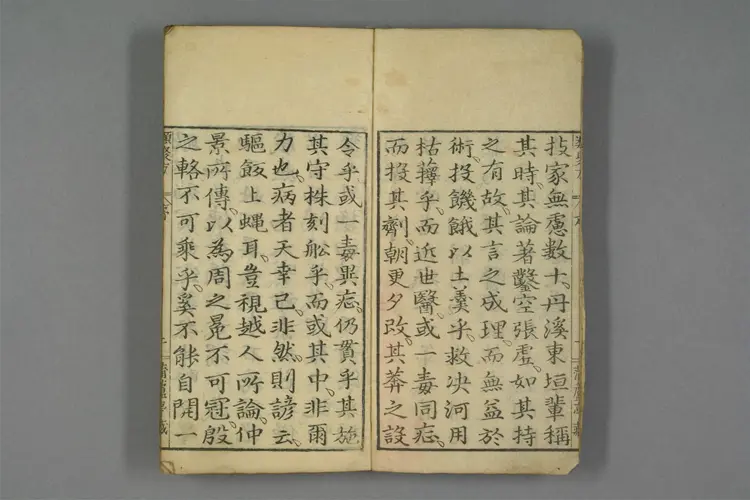 技家無慮数十丹溪東垣輩稱
其時其論著鑿空張虛如其持
之有故其言之成理而無益於
術投饑餓以土羹乎救决河用
枯蘀乎而近世醫或一毒同忘
而投其劑朝更夕改其莽之設
令乎或一毒異忘仍貫乎其施
其守株刻舩乎而或其中非爾
力也病者天幸已非然則諺云
驅飯上蠅耳豈視越人所論仲
景所傳以為周之冕不可冠殷
之輅不可乘乎奚不能自開一